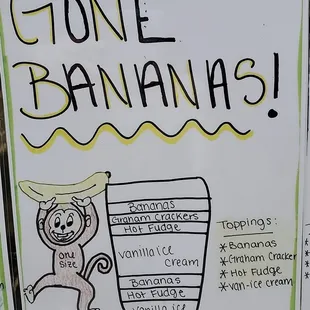 GONE
BANANAS!
Bananas
Graham Crackers
Hot Fudge
vanilla ice
cream
Bananas
Hot Fudge
Vanilla ice
one
size
Toppings:
*Bananas
*Graham Cracker
*Hot Fudge
*van-ice cream